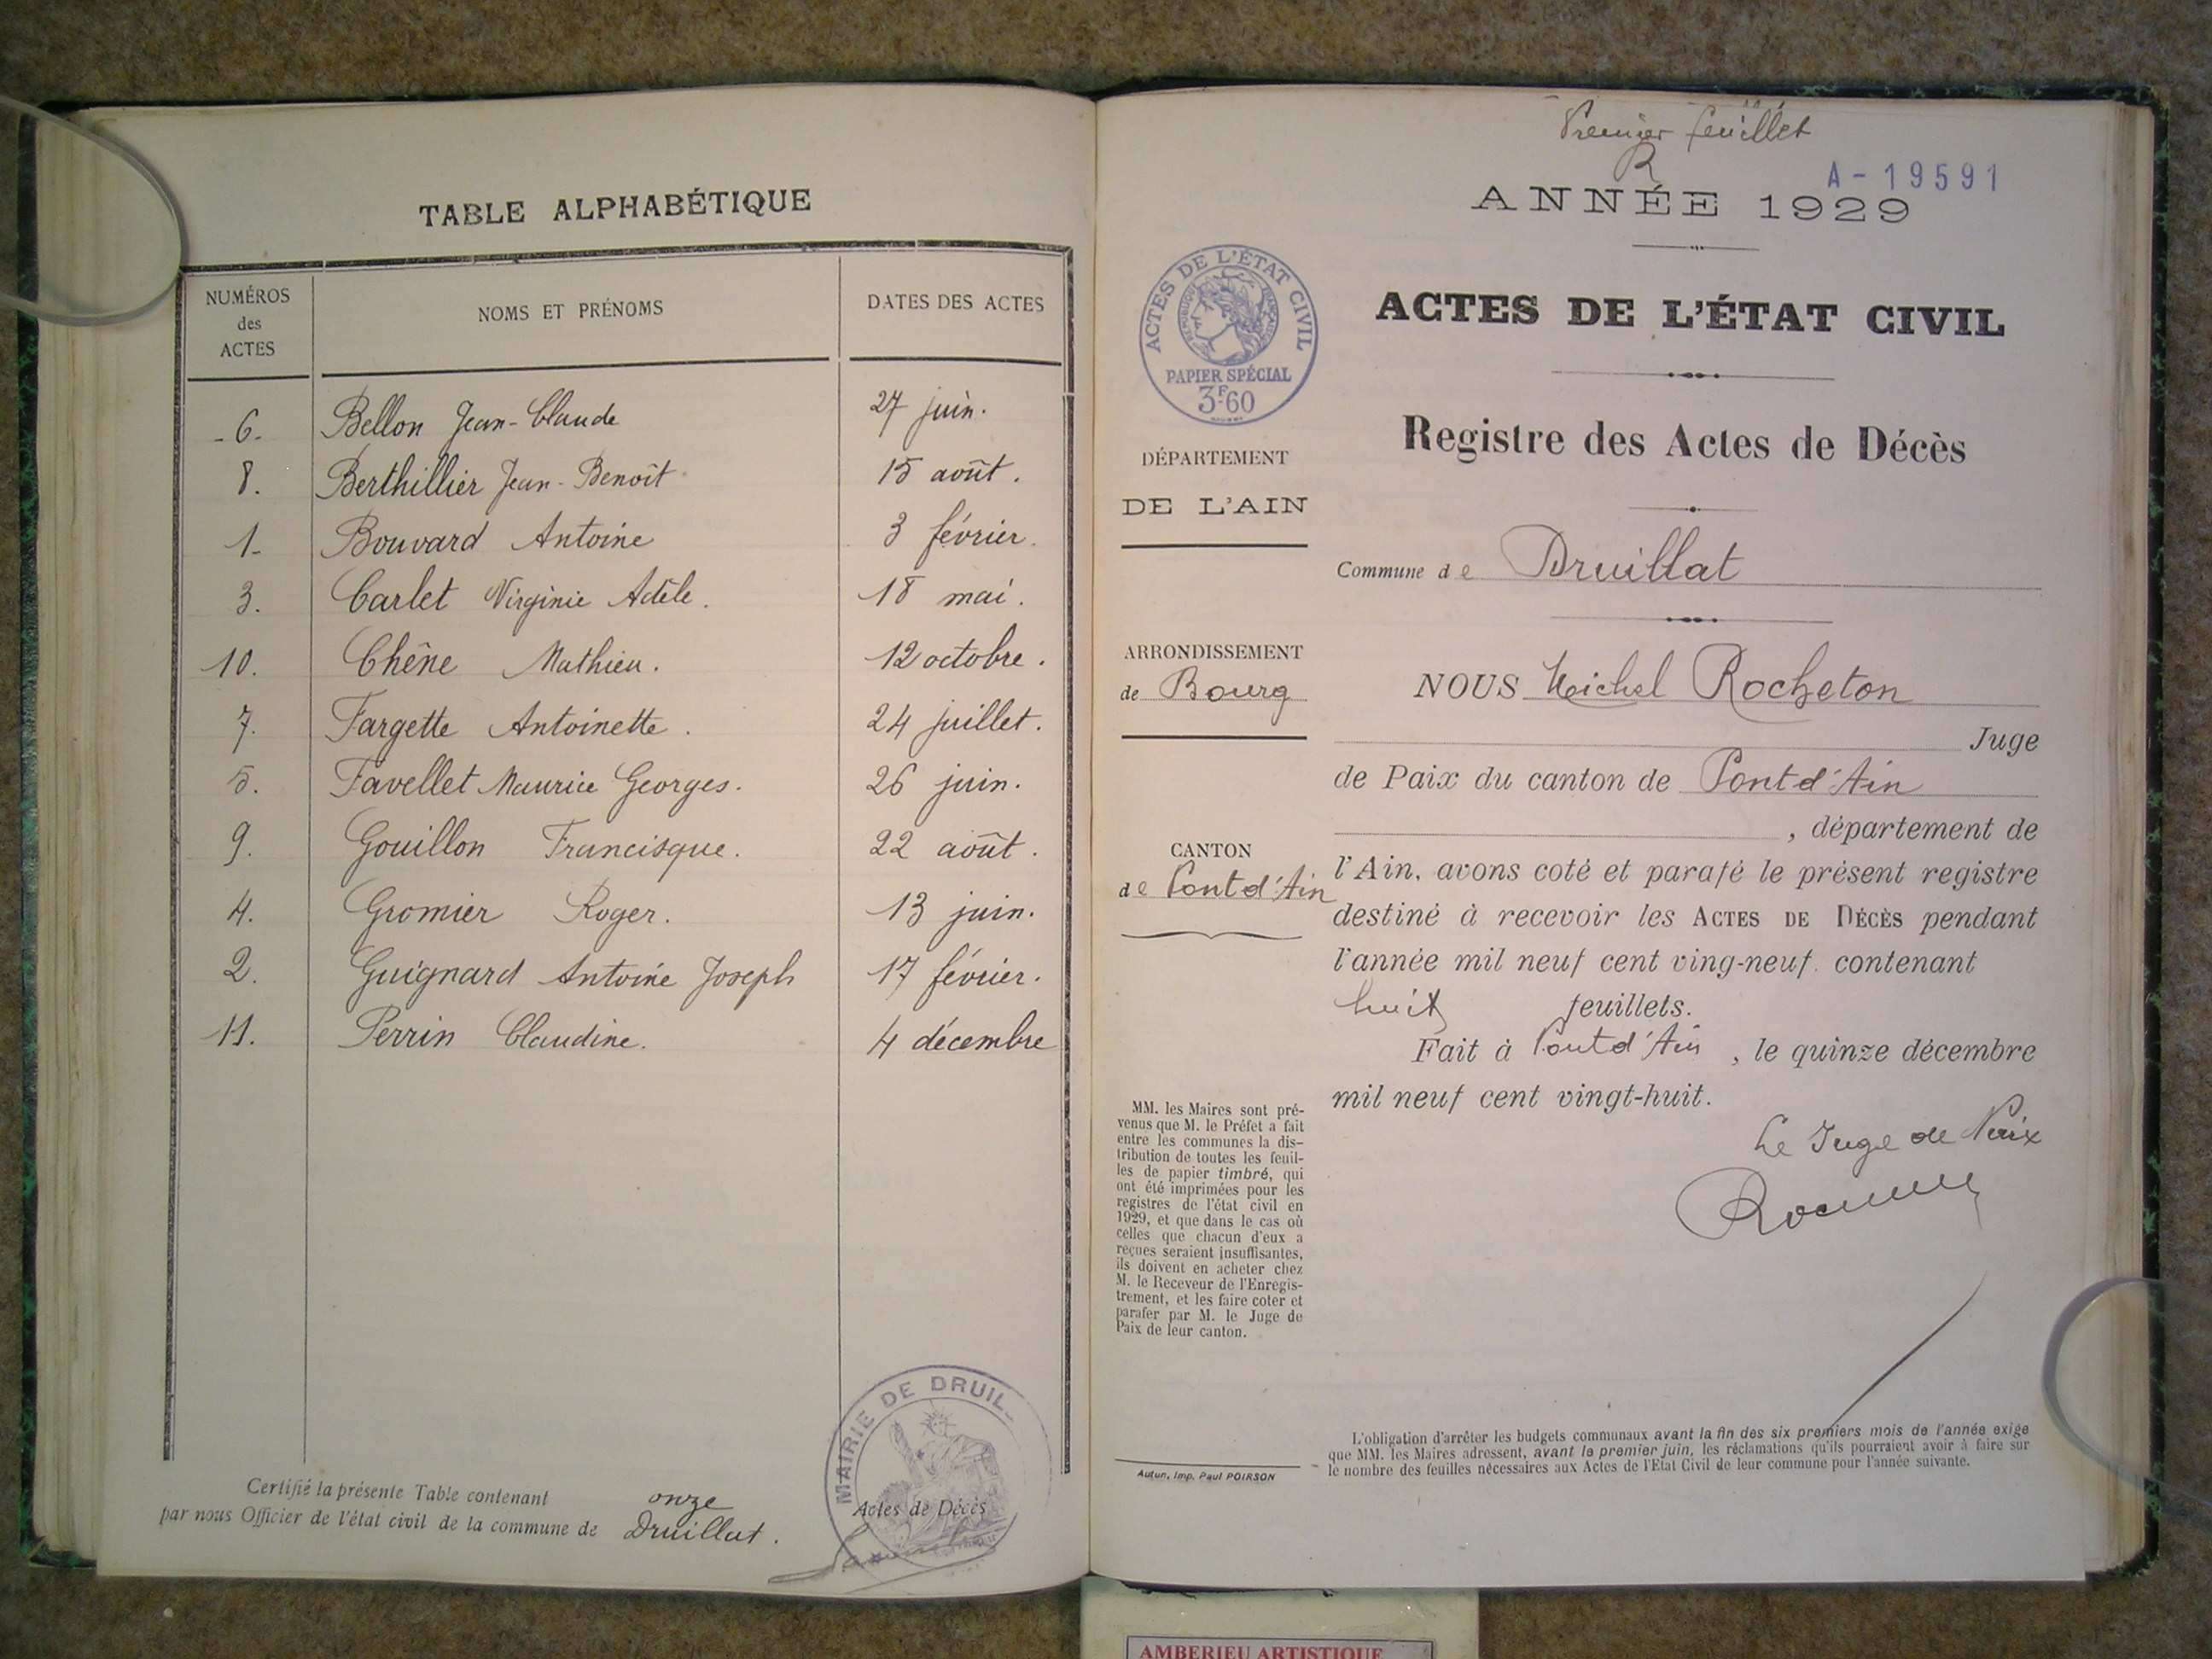 TABLE ALPHABÉTIQUE
NUMÉROS des ACTES NOMS ET PRÉNOMS DATES DES ACTES
- 6. Bellon Jean-Claude 27 juin.
8. Berthillier Jean-Benoît 15 août.
1. Bouvard Antoine 3 février.
3. Carlet Virginie Adèle. 18 mai.
10. Chêne Mathieu. 12 octobre.
7. Fargette Antoinette. 24 juillet.
5. Favellet Maurice Georges. 26 juin.
9. Gouillon Francisque. 22 août.
4. Gromier Roger. 13 juin.
2. Guignard Antoine Joseph 17 février.
11. Perrin Claudine. 4 décembre
Certifié la présente Table contenant onze Actes de Décès
par nous Officier de l'état civil de la commune de Druillat.
MAIRIE DE DRUIL
Premier feuillet
R
A-19591
ANNÉE 1929
ACTES DE L'ÉTAT CIVIL
RÉPUBLIQUE FRANÇAISE
PAPIER SPÉCIAL
3F.60
ACTES DE L'ÉTAT CIVIL
Registre des Actes de Décès
DÉPARTEMENT
DE L'AIN
Commune de Druillat
ARRONDISSEMENT
de Bourg
NOUS Michel Rocheton
Juge
de Paix du canton de Pont d'Ain
, département de
CANTON
de Pont d'Ain
l'Ain, avons coté et parafé le présent registre
destiné à recevoir les ACTES DE DÉCÈS pendant
l'année mil neuf cent ving-neuf. contenant
huit feuillets.
Fait à Pont d'Ain , le quinze décembre
mil neuf cent vingt-huit.
Le Juge de Paix
MM. les Maires sont pré-
venus que M. le Préfet a fait
entre les communes la dis-
tribution de toutes les feuil-
les de papier timbré, qui
ont été imprimées pour les
registres de l'état civil en
1929, et que dans le cas où
celles que chacun d'eux a
reçues seraient insuffisantes,
ils doivent en acheter chez
M. le Receveur de l'Enregis-
trement, et les faire coter et
parafer par M. le Juge de
Paix de leur canton.
Autun, Imp. Paul POIRSON
L'obligation d'arrêter les budgets communaux avant la fin des six premiers mois de l'année exige
que MM. les Maires adressent, avant le premier juin, les réclamations qu'ils pourraient avoir à faire sur
le nombre des feuilles nécessaires aux Actes de l'Etat Civil de leur commune pour l'année suivante.
AMBERIEU ARTISTIQUE